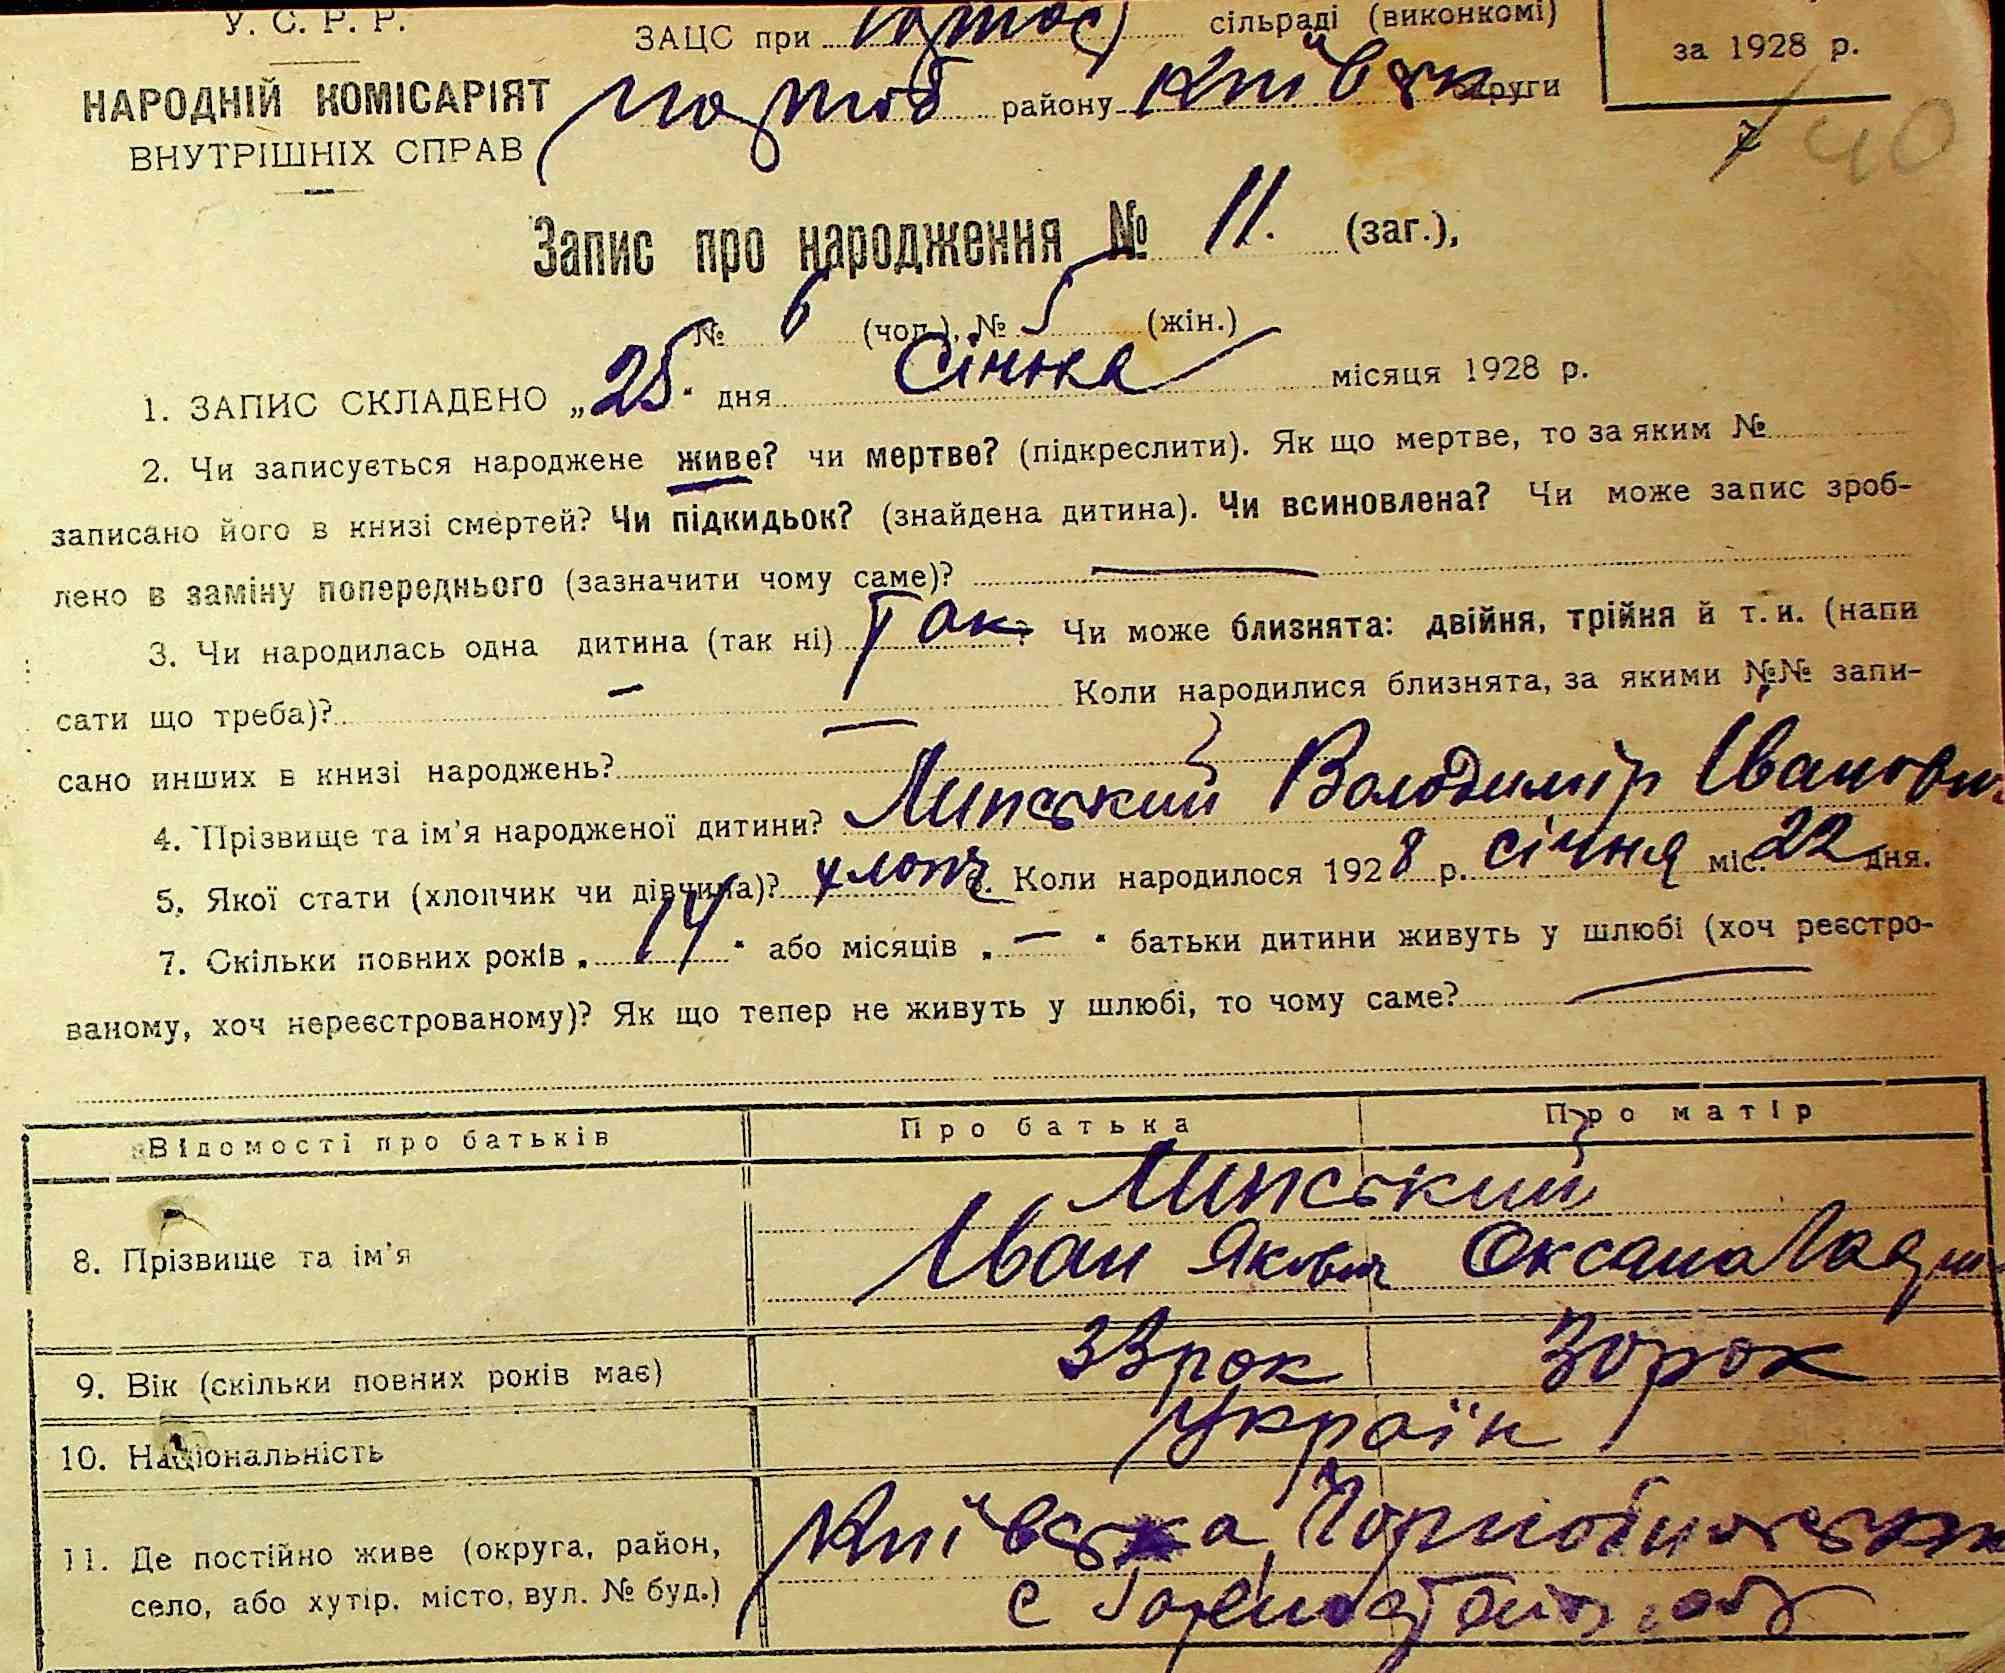 У. С. Р. Р.
НАРОДНІЙ КОМІСАРІЯТ
ВНУТРІШНІХ СПРАВ
ЗАЦС при сільраді (виконкомі)
району Київськ округи
за 1928 р.
40
Запис про народження № 11. (заг.),
№ 6 (чол.), № 5 (жін.)
1. ЗАПИС СКЛАДЕНО „25" дня Січня місяця 1928 р.
2. Чи записується народжене живе? чи мертве? (підкреслити). Як що мертве, то за яким №
записано його в книзі смертей? Чи підкидьок? (знайдена дитина). Чи всиновлена? Чи може запис зроб-
лено в заміну попереднього (зазначити чому саме)? —
3. Чи народилась одна дитина (так ні) Так? Чи може близнята: двійня, трійня й т. и. (напи
сати що треба)? — Коли народилися близнята, за якими №№ запи-
сано инших в книзі народжень? —
4. Прізвище та ім'я народженої дитини? Липський Володимір Іванови
5. Якої стати (хлопчик чи дівчина)? хлопч 6. Коли народилося 1928 р. січня міс. 22 дня.
7. Скільки повних років „14" або місяців „—" батьки дитини живуть у шлюбі (хоч реєстро-
ваному, хоч нереєстрованому)? Як що тепер не живуть у шлюбі, то чому саме? —
Відомості про батьків Про батька Про матір
8. Прізвище та ім'я Липський
Іван Якович Оксана
9. Вік (скільки повних років має) 33 рок 30 рок
10. Національність Україн
11. Де постійно живе (округа, район,
село, або хутір, місто, вул. № буд.)
Київська, Чорнобильськ
с Горностайпіль